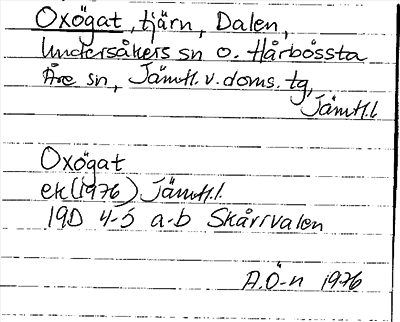 Oxögat, tjärn, Dalen,
Undersåkers sn o. Hårbössta
Åre sn, Jämtl. v. doms. tg,
Jämtl. l
Oxögat
ek (1976) Jämtl. l.
19D 4-5 a-b Skårrvalen
A.Ö-n 1976